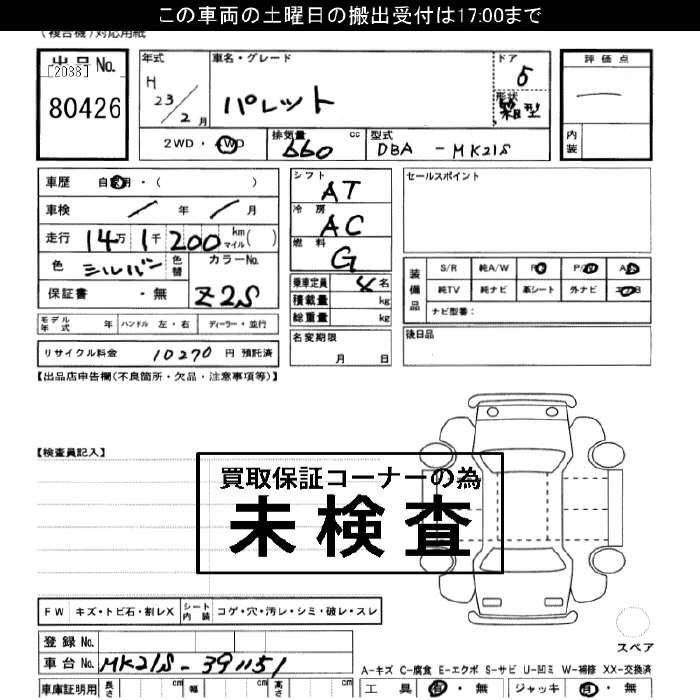 この車両の土曜日の搬出受付は17:00まで
(複合機)対応用紙
出品No. [2088] 80426
年式 H 23/2月
車名・グレード パレット
ドア 5
形状 箱型
評価点 —
内装
2WD・4WD
排気量 660 cc
型式 DBA - MK21S
車歴 自家用・( )
車検 / 年 / 月
走行 14万 1千 200 km マイル ( )
色 シルバー 色替 カラーNo. Z2S
保証書 ・無
シフト AT
冷房 AC
燃料 G
乗車定員 4名
積載量 kg
総重量 kg
セールスポイント
装備品 S/R 純A/W P/S P/W A/C
純TV 純ナビ 革シート 外ナビ エアB
ナビ型番:
モデル年式 年 ハンドル 左・右 ディーラー・並行
名変期限 月 日
後日品
リサイクル料金 10270 円 預託済
【出品店申告欄(不良箇所・欠品・注意事項等)】
【検査員記入】
買取保証コーナーの為
未検査
FW キズ・トビ石・割レX シート内装 コゲ・穴・汚レ・シミ・破レ・スレ
登録No.
車台No. MK21S-391151
スペア
A-キズ C-腐食 E-エクボ S-サビ U-凹ミ W-補修 XX-交換済
車庫証明用 長さ cm 幅 cm 高さ cm
工具 有・無 ジャッキ 有・無